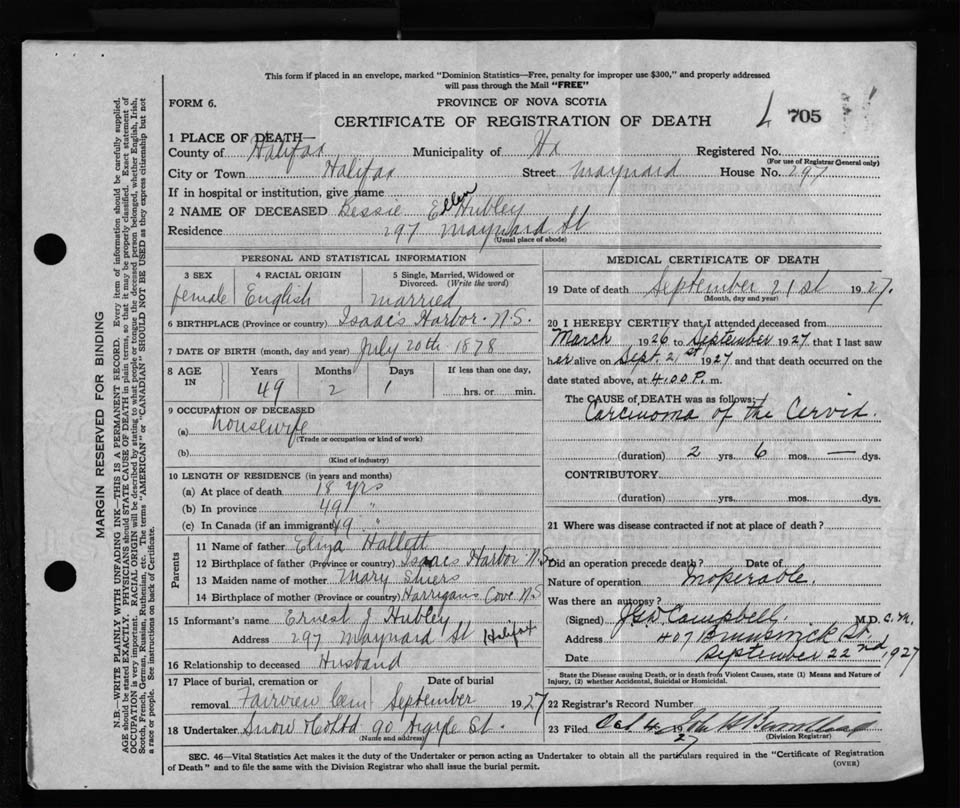 This form if placed in an envelope, marked "Dominion Statistics—Free, penalty for improper use $300," and properly addressed
will pass through the Mail "FREE"
FORM 6.
PROVINCE OF NOVA SCOTIA
CERTIFICATE OF REGISTRATION OF DEATH
L 705
1 PLACE OF DEATH—
County of Halifax Municipality of Hx Registered No.
(For use of Registrar General only)
City or Town Halifax Street Maynard House No. 297
If in hospital or institution, give name
2 NAME OF DECEASED Bessie Ellen Hubley
Residence 297 Maynard St
(Usual place of abode)
PERSONAL AND STATISTICAL INFORMATION
3 SEX 4 RACIAL ORIGIN 5 Single, Married, Widowed or
Divorced. (Write the word)
female English married
6 BIRTHPLACE (Province or country) Isaac's Harbor. N.S.
7 DATE OF BIRTH (month, day and year) July 20th 1878
8 AGE IN Years Months Days If less than one day,
49 2 1 hrs. or min.
9 OCCUPATION OF DECEASED
(a) housewife
(Trade or occupation or kind of work)
(b)
(Kind of industry)
10 LENGTH OF RESIDENCE (in years and months)
(a) At place of death 18 yrs
(b) In province 49 "
(c) In Canada (if an immigrant) 49 "
Parents
11 Name of father Hallett
12 Birthplace of father (Province or country) Isaacs Harbor N.S.
13 Maiden name of mother Mary
14 Birthplace of mother (Province or country) Harrigans Cove N.S
15 Informant's name Ernest J. Hubley
Address 297 Maynard St Halifax
16 Relationship to deceased Husband
17 Place of burial, cremation or Date of burial
removal Fairview Cem September 1927
18 Undertaker Snow & Co Ltd 90 Argyle St.
(Name and address)
MEDICAL CERTIFICATE OF DEATH
19 Date of death September 21st 1927.
(Month, day and year)
20 I HEREBY CERTIFY that I attended deceased from
March 1926 to September 1927 that I last saw
her alive on Sept. 21st 1927 and that death occurred on the
date stated above, at 4.00 P. m.
The CAUSE of DEATH was as follows:
Carcinoma of the Cervix.
(duration) 2 yrs. 6 mos. — dys.
CONTRIBUTORY.
(duration) yrs. mos. dys.
21 Where was disease contracted if not at place of death?
Did an operation precede death? Date of
Nature of operation Inoperable.
Was there an autopsy?
(Signed) Campbell, M.D. C.M.
Address 407 Brunswick St.
Date September 22nd 1927
State the Disease causing Death, or in death from Violent Causes, state (1) Means and Nature of
Injury, (2) whether Accidental, Suicidal or Homicidal.
22 Registrar's Record Number
23 Filed Oct 4 1927
(Division Registrar)
SEC. 46—Vital Statistics Act makes it the duty of the Undertaker or person acting as Undertaker to obtain all the particulars required in the "Certificate of Registration
of Death" and to file the same with the Division Registrar who shall issue the burial permit.
(OVER)
MARGIN RESERVED FOR BINDING
N.B.—WRITE PLAINLY WITH UNFADING INK—THIS IS A PERMANENT RECORD. Every item of information should be carefully supplied.
AGE should be stated EXACTLY. PHYSICIANS should STATE CAUSE OF DEATH in plain terms, so that it may be properly classified. Exact statement of
OCCUPATION is very important. RACIAL ORIGIN will be described by stating to what people or tongue the deceased person belonged, whether English, Irish,
Scotch, French, German, Russian, Ruthenian, etc. The terms "AMERICAN" or "CANADIAN" SHOULD NOT BE USED as they express citizenship but not
a race or people. See instructions on back of Certificate.